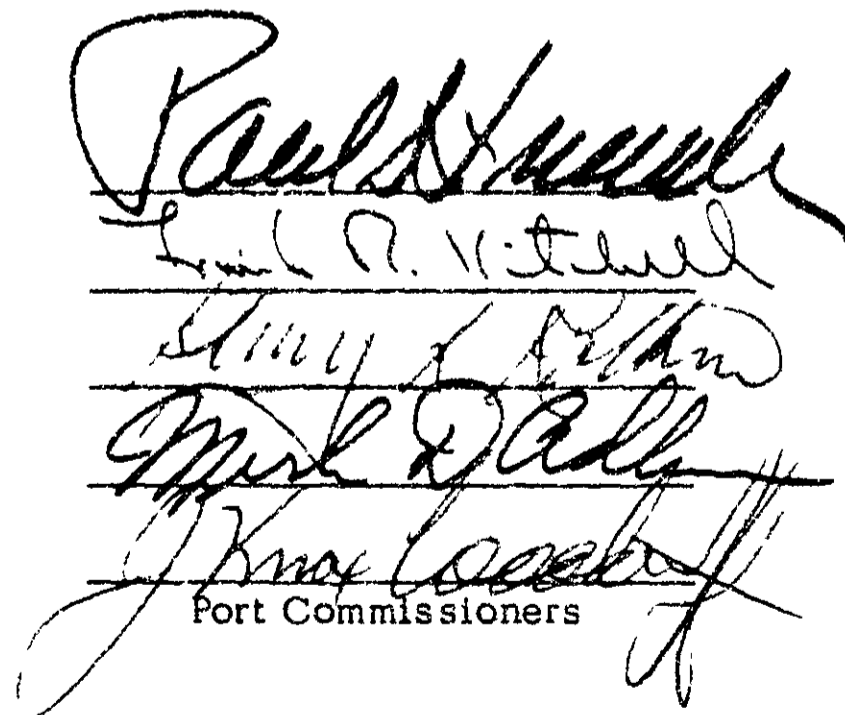 Paul S
Frank R. Kitchell
Henry L Kotkins
Merle D Adlum
J Knox Woodruff
Port Commissioners